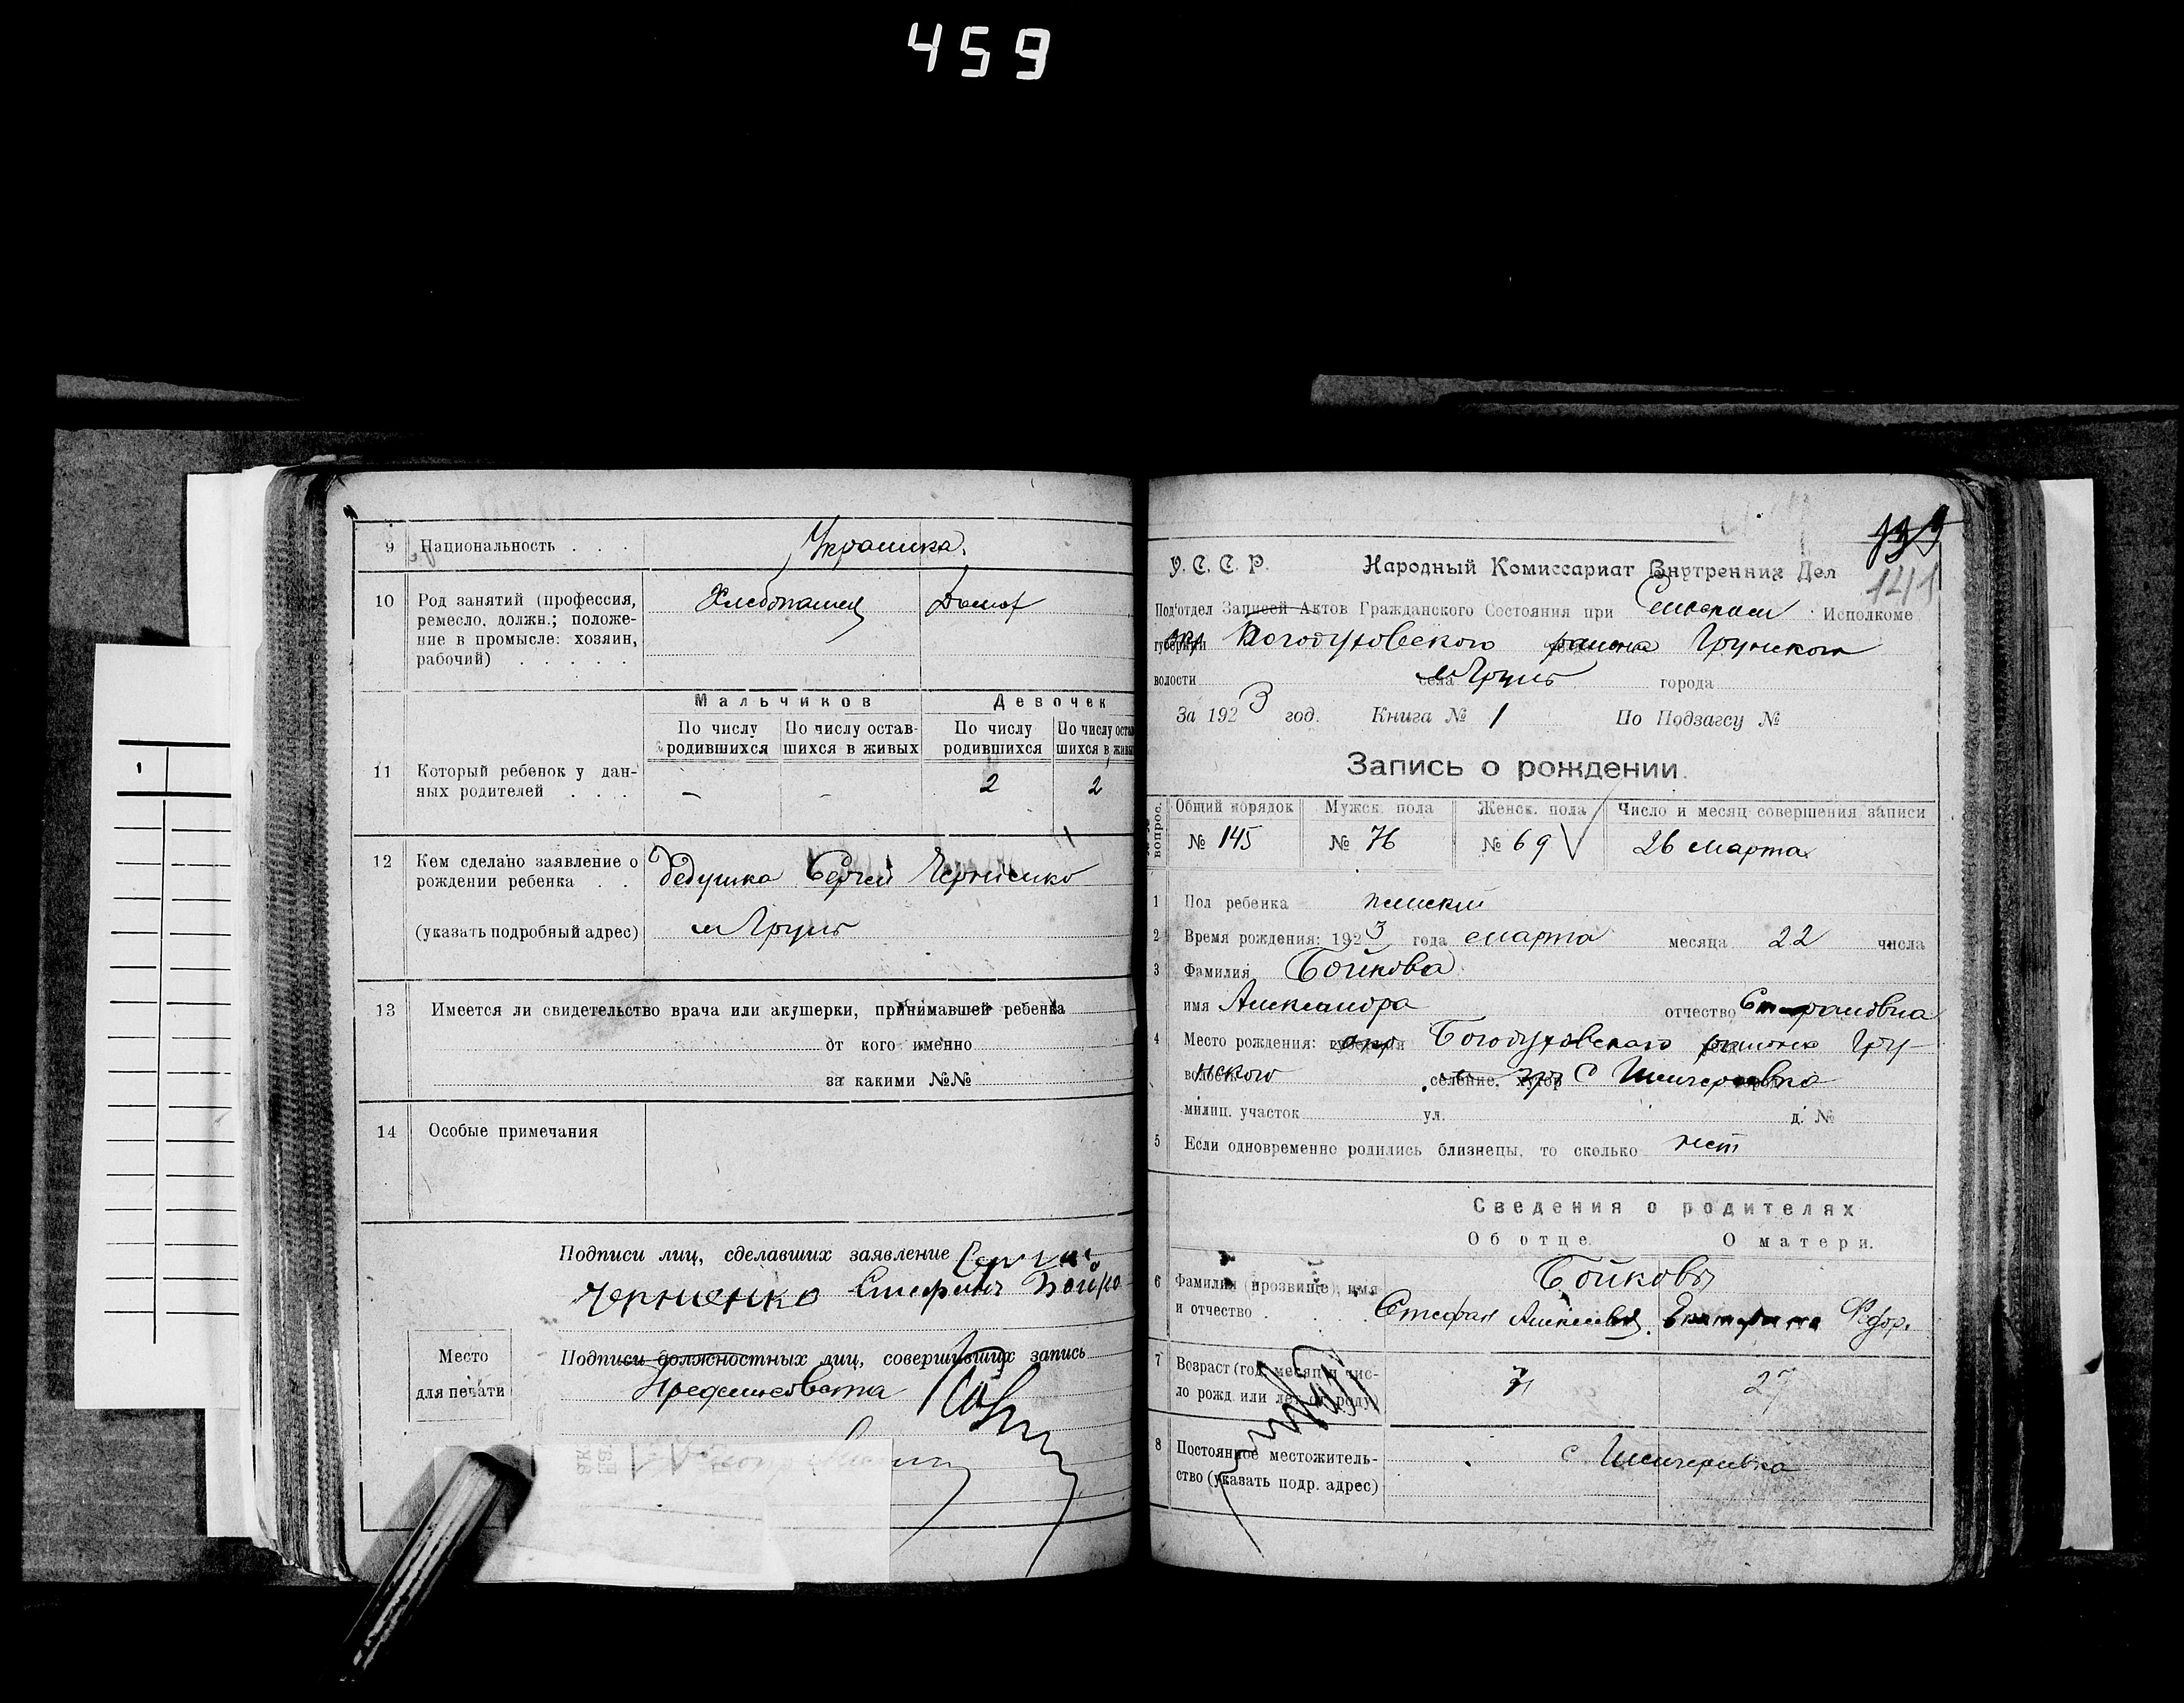 459
9 Национальность . . . Украинка.
10 Род занятий (профессия, Хлебопашец Домох
ремесло, должн.; положе-
ние в промысле: хозяин,
рабочий) . . . . .
Мальчиков Девочек
По числу родившихся По числу остав-шихся в живых По числу родившихся По числу остав-шихся в живых
11 Который ребенок у дан-
ных родителей . . . – – 2 2
12 Кем сделано заявление о
рождении ребенка . . Дедушка Сергей Черненко
(указать подробный адрес) м Грунь
13 Имеется ли свидетельство врача или акушерки, принимавшей ребенка
от кого именно
за какими №№
14 Особые примечания
Подписи лиц, сделавших заявление Сергий
Черненко Стефанъ Бойко
Подписи должностных лиц, совершивших запись
Место
для печати
Предсельсовета
139
141
У. С. С. Р. Народный Комиссариат Внутренних Дел
Под'отдел Записей Актов Гражданского Состояния при Исполкоме
губернии окр Богодуховского района Грунского
волости села м Грунь города
За 1923 год. Книга № 1 По Подзагсу №
Запись о рождении.
вопрос. Общий порядок Мужск. пола Женск. пола Число и месяц совершения записи
№ 145 № 76 № 69 26 марта
1 Пол ребенка женский
2 Время рождения: 1923 года марта месяца 22 числа
3 Фамилия Бойкова
имя Александра отчество Стефановна
4 Место рождения: губернии окр Богодуховского района Гру-
волости нского селение, хутор с
милиц. участок ул. д. №
5 Если одновременно родились близнецы, то сколько нет
Сведения о родителях
Об отце. О матери.
6 Фамилия (прозвище), имя Бойковы
и отчество . . . . Стефан Алексеев. Екатерина Федор.
7 Возраст (год, месяц и чис-
ло рожд. или лет от роду) 27
8 Постоянное местожитель- с.
ство (указать подр. адрес)